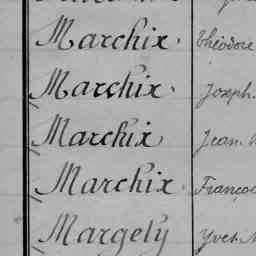 Marchix Théodore
Marchix Joseph
Marchix Jean
Marchix
Margely Yves